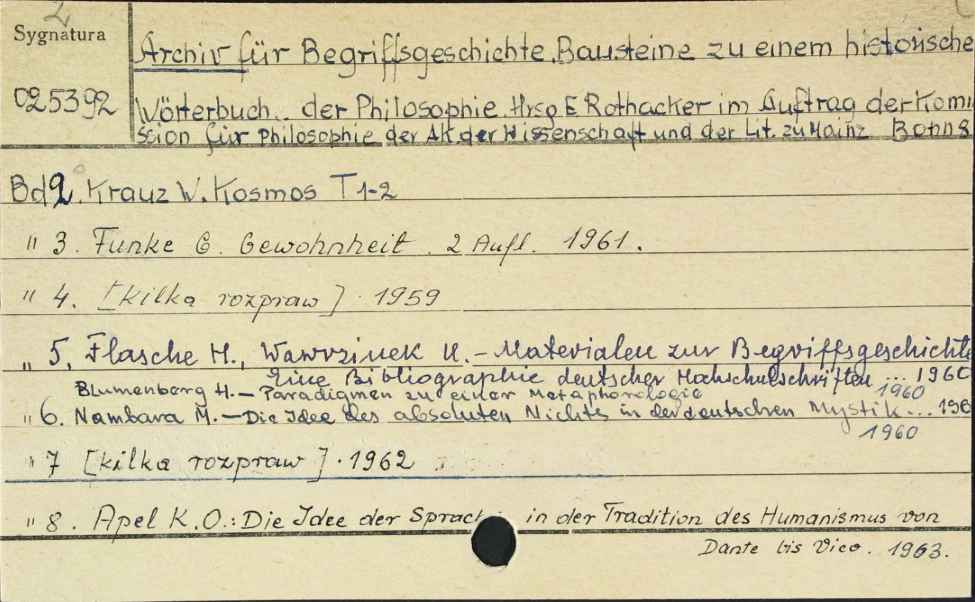 2
Sygnatura
025392
Archiv für Begriffsgeschichte. Bausteine zu einem historische
Wörterbuch.. der Philosophie. Hrsg E Rothacker im Auftrag der Komi
ssion für Philosophie der Ak. der Wissenschaft und der Lit. zu Mainz Bonn
Bd 2. Kranz W. Kosmos T 1-2
" 3. Funke G. Gewohnheit. 2 Aufl. 1961.
" 4. [kilka rozpraw]. 1959
" 5. Flasche H., Wawrzinek U. - Materialen zur Begriffsgeschichte
Eine Bibliographie deutscher Hochschulschriften ... 1960
Blumenberg H. - Paradigmen zu einer Metaphorologie 1960
" 6. Nambara M. - Die Idee des absoluten Nichts in der deutschen Mystik... 196
1960
" 7 [kilka rozpraw]. 1962
" 8. Apel K. O.: Die Idee der Sprach in der Tradition des Humanismus von
Dante bis Vico. 1963.